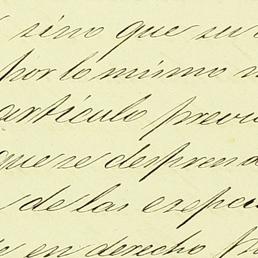 sino que su
por lo mismo
artículo previ
que se despren
de las excepci
en derecho